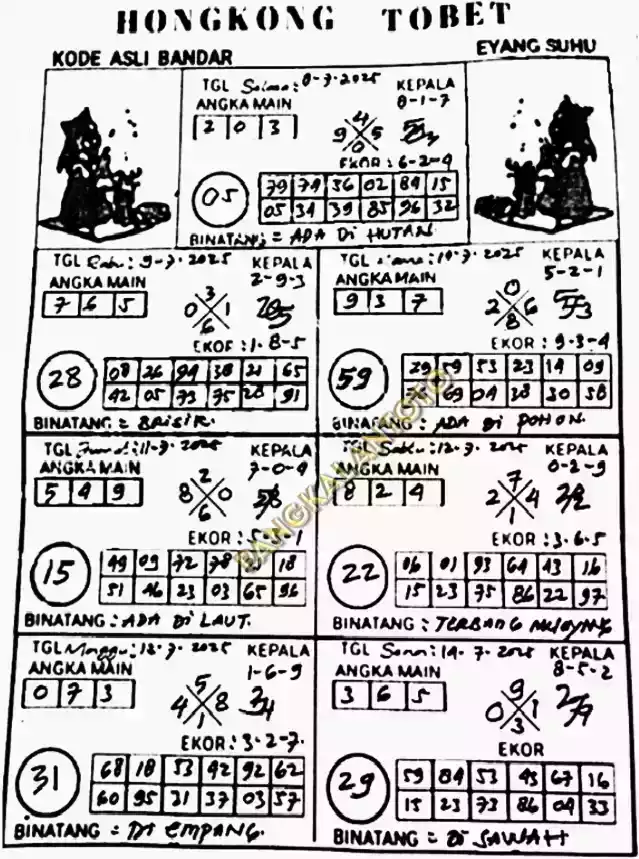 HONGKONG TOBET
KODE ASLI BANDAR
EYANG SUHU
TGL 8-7-2025
KEPALA
ANGKA MAIN
0-1-7
2 0 3
4
9 5
0
EKOR : 6-2-4
05
79 74 36 02 84 15
05 34 39 85 96 32
BINATANG = ADA Di HUTAN
TGL Rabu : 9-7-2025
KEPALA
ANGKA MAIN
2-9-3
7 6 5
3
0 1
6
EKOR : 1-8-5
28
08 26 94 38 21 65
42 05 73 75 28 91
BINATANG = BRISIK.
TGL 10-7-2025
KEPALA
ANGKA MAIN
5-2-1
9 3 7
0
2 6
8
EKOR : 9-3-4
59
29 59 53 23 14 09
69 04 38 30 58
BINATANG : ADA Di POHON.
TGL Jumat : 11-7-2025
KEPALA
ANGKA MAIN
7-0-4
5 4 9
2
8 0
6
EKOR
15
49 09 72 78 18
51 46 23 03 65 96
BINATANG : ADA Di LAUT.
TGL Sabtu : 12-7-2025
KEPALA
ANGKA MAIN
0-2-9
8 2 4
7
2 4
1
EKOR : 3-6-5
22
06 01 93 64 43 16
15 23 75 86 22 97
BINATANG : TERBANG
TGL Minggu : 13-7-2025
KEPALA
ANGKA MAIN
1-6-9
0 7 3
5
4 8
1
EKOR : 3-2-7
31
68 18 53 42 92 62
60 95 31 37 03 57
BINATANG = Di EMPANG.
TGL Senin : 14-7-2025
KEPALA
ANGKA MAIN
8-5-2
3 6 5
9
0 1
3
EKOR
29
59 84 53 45 67 16
15 23 73 86 04 33
BINATANG = Di SAWAH
PANGKALANTOTO